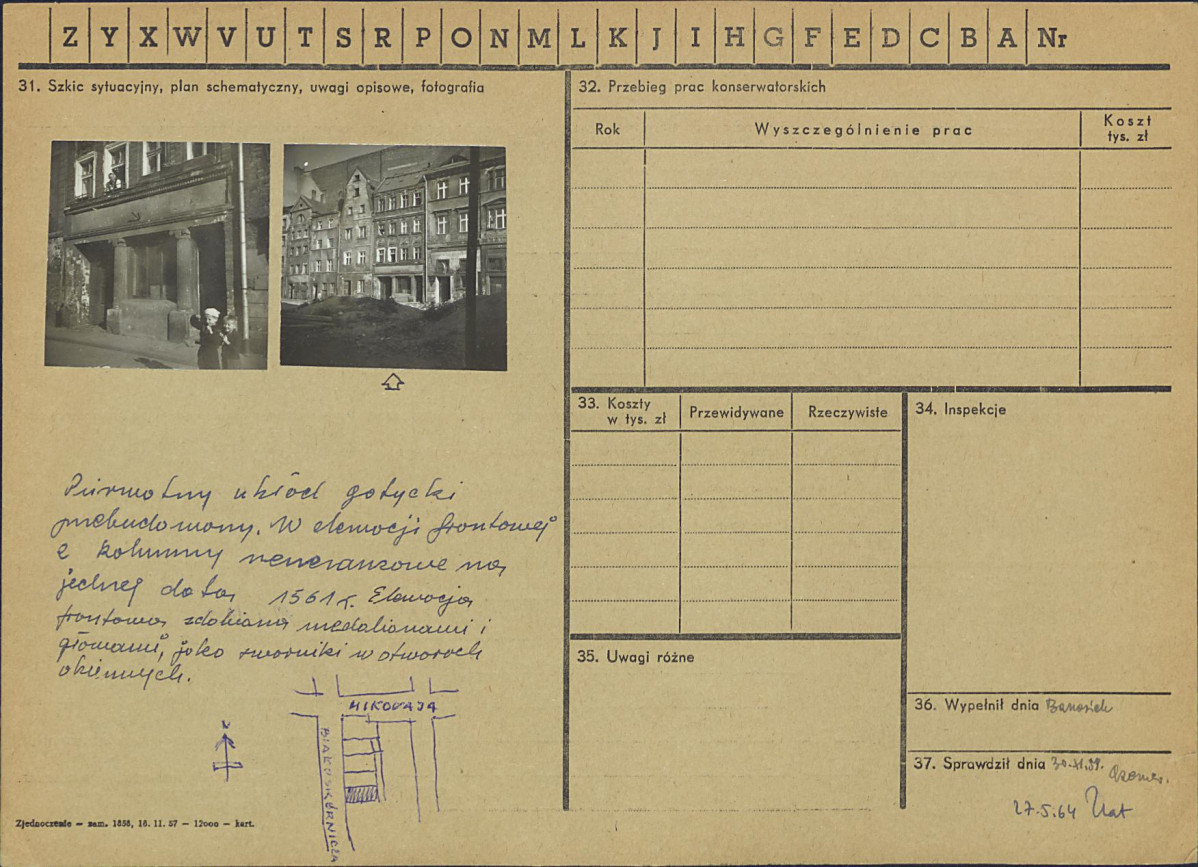 Z Y X W V U T S R P O N M L K J I H G F E D C B A Nr
31. Szkic sytuacyjny, plan schematyczny, uwagi opisowe, fotografia
Pierwotny układ gotycki
przebudowany. W elewacji frontowej
2 kolumny renesansowe na
jednej data 1561 r. Elewacja
frontowa zdobiona medalionami i
głowami, jako zworniki w otworach
okiennych.
N
MIKOŁAJA
BIAŁOSKÓRNICZA
Zjednoczenie — zam. 1858, 18. 11. 57 — 12000 — kart.
32. Przebieg prac konserwatorskich
Rok
Wyszczególnienie prac
Koszt
tys. zł
33. Koszty
w tys. zł
Przewidywane
Rzeczywiste
34. Inspekcje
35. Uwagi różne
36. Wypełnił dnia
37. Sprawdził dnia 30.XI.59.
27.5.64